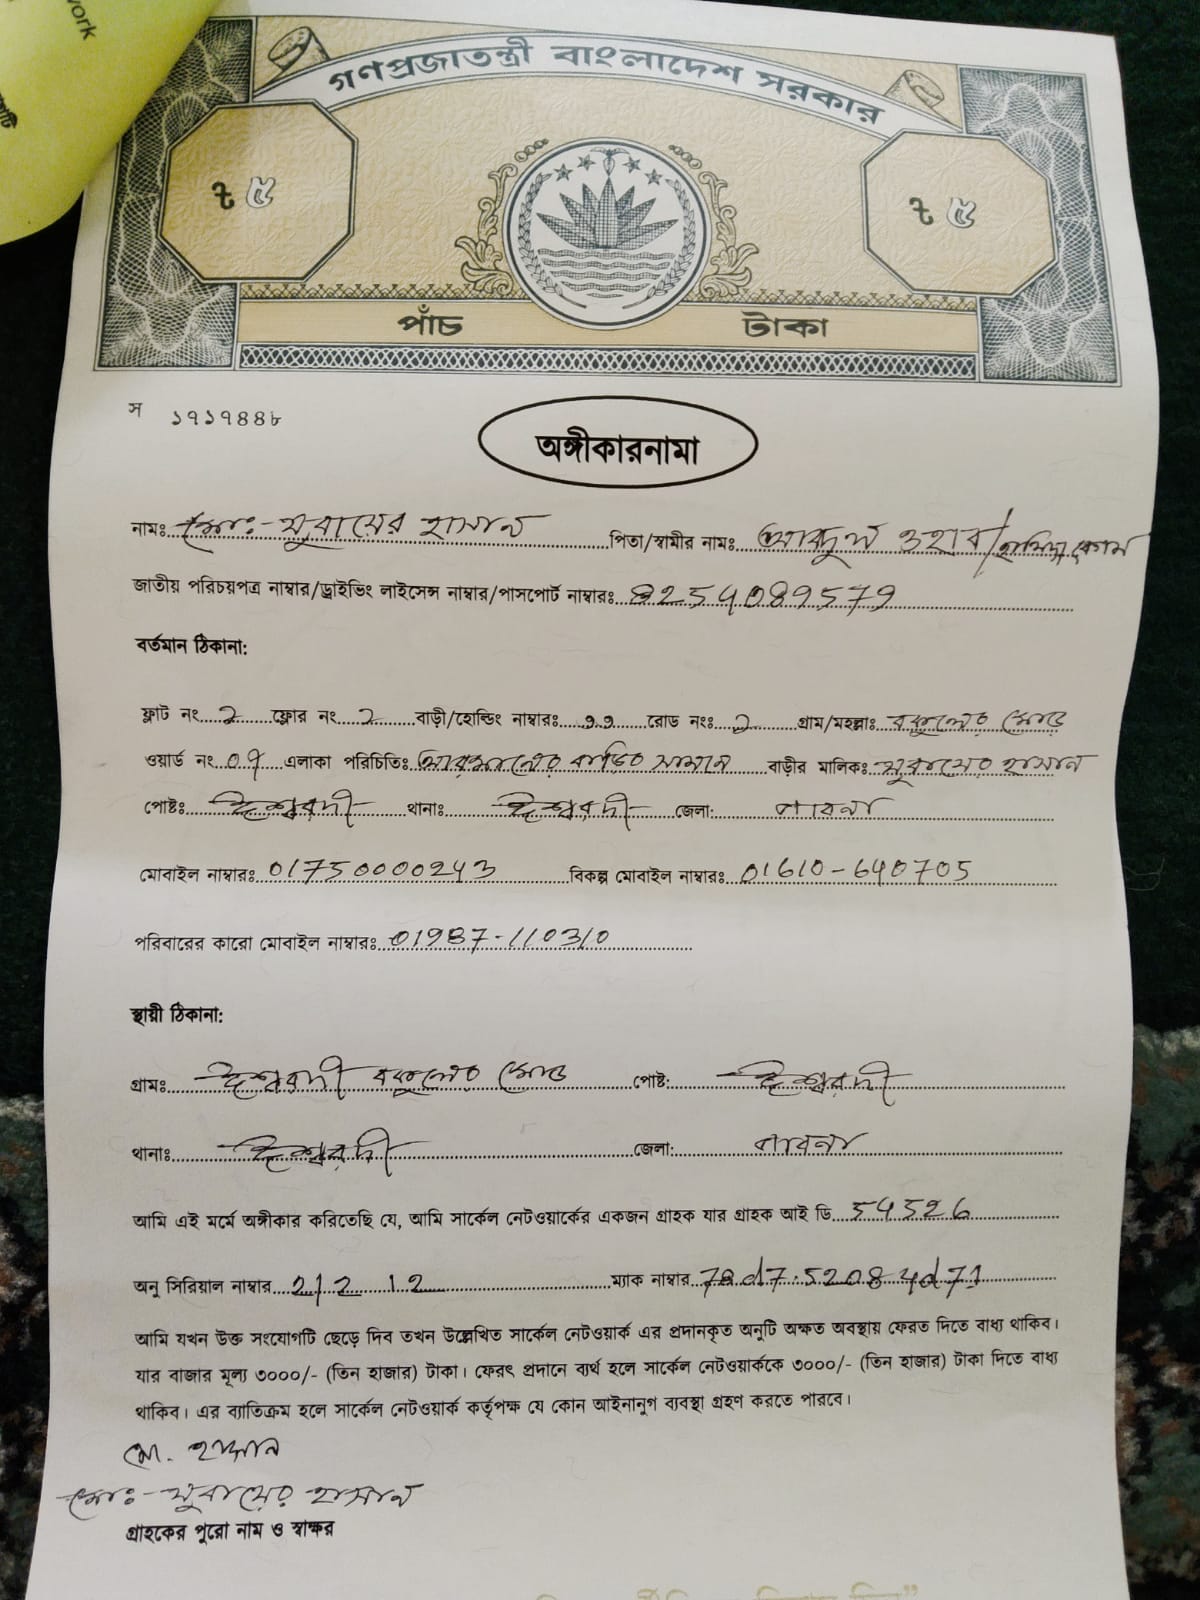 work
গণপ্রজাতন্ত্রী বাংলাদেশ সরকার
৳ ৫ ৳ ৫
পাঁচ টাকা
স ১৭১৭৪৪৮
অঙ্গীকারনামা
নামঃ মোঃ- যুবায়ের হাসান পিতা/স্বামীর নামঃ আব্দুল ওহাব/
জাতীয় পরিচয়পত্র নাম্বার/ড্রাইভিং লাইসেন্স নাম্বার/পাসপোর্ট নাম্বারঃ 8254089579
বর্তমান ঠিকানা:
ফ্লাট নং 2 ফ্লোর নং 2 বাড়ী/হোল্ডিং নাম্বারঃ রোড নংঃ গ্রাম/মহল্লাঃ বকুলের মোড়
ওয়ার্ড নং 07 এলাকা পরিচিতিঃ বাড়ির সামনে বাড়ীর মালিকঃ যুবায়ের হাসান
পোষ্টঃ ঈশ্বরদী থানাঃ ঈশ্বরদী জেলা: পাবনা
মোবাইল নাম্বারঃ 01750000243 বিকল্প মোবাইল নাম্বারঃ 01610-640705
পরিবারের কারো মোবাইল নাম্বারঃ 01987-110310
স্থায়ী ঠিকানা:
গ্রামঃ ঈশ্বরদী বকুলের মোড় পোষ্ট: ঈশ্বরদী
থানাঃ ঈশ্বরদী জেলা: পাবনা
আমি এই মর্মে অঙ্গীকার করিতেছি যে, আমি সার্কেল নেটওয়ার্কের একজন গ্রাহক যার গ্রাহক আই ডি 54526
অনু সিরিয়াল নাম্বার 212 12 ম্যাক নাম্বার
আমি যখন উক্ত সংযোগটি ছেড়ে দিব তখন উল্লেখিত সার্কেল নেটওয়ার্ক এর প্রদানকৃত অনুটি অক্ষত অবস্থায় ফেরত দিতে বাধ্য থাকিব।
যার বাজার মূল্য ৩০০০/- (তিন হাজার) টাকা। ফেরৎ প্রদানে ব্যর্থ হলে সার্কেল নেটওয়ার্ককে ৩০০০/- (তিন হাজার) টাকা দিতে বাধ্য
থাকিব। এর ব্যাতিক্রম হলে সার্কেল নেটওয়ার্ক কর্তৃপক্ষ যে কোন আইনানুগ ব্যবস্থা গ্রহণ করতে পারবে।
মো. হাসান
মোঃ- যুবায়ের হাসান
গ্রাহকের পুরো নাম ও স্বাক্ষর